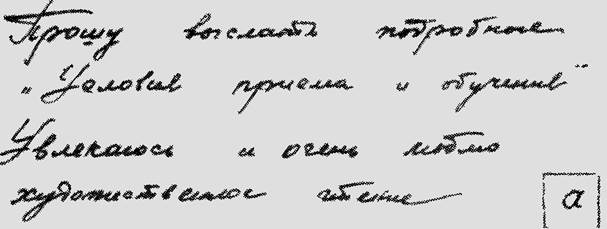 Прошу выслать подробные
„Условия приема и обучения"
Увлекаюсь и очень люблю
художественное чтение
а